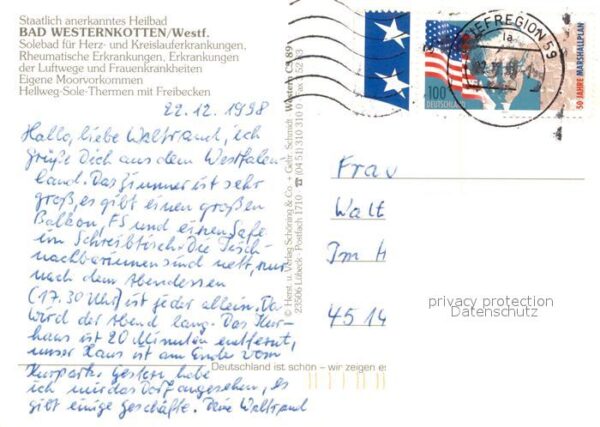 Staatlich anerkanntes Heilbad
BAD WESTERNKOTTEN/Westf.
Solebad für Herz- und Kreislauferkrankungen,
Rheumatische Erkrankungen, Erkrankungen
der Luftwege und Frauenkrankheiten
Eigene Moorvorkommen
Hellweg-Sole-Thermen mit Freibecken
22.12.1998
Hallo, liebe Waltraud, ich
grüße Dich aus dem Westfalen-
land. Das Zimmer ist sehr
groß, es gibt einen großen
Balkon, FS und einen Safe
im Schreibtisch. Die Tisch-
nachbarinnen sind nett, nur
nach dem Abendessen
(17.30 Uhr) ist jeder allein. Da
wird der Abend lang. Das Kur-
haus ist 20 Minuten entfernt,
unser Haus ist am Ende vom
Kurpark. Gestern habe
ich mir das Dorf angesehen, es
gibt einige Geschäfte. Deine Waltraud
© Herst. u. Verlag Schöning & Co + Gebr. Schmidt
23506 Lübeck · Postfach 1710 ☎ (04 51) 310 310
Deutschland ist schön – wir zeigen es
BRIEFREGION 59
1a
100
DEUTSCHLAND
50 JAHRE MARSHALLPLAN
Frau
Walt
Im H
4514
privacy protection
Datenschutz